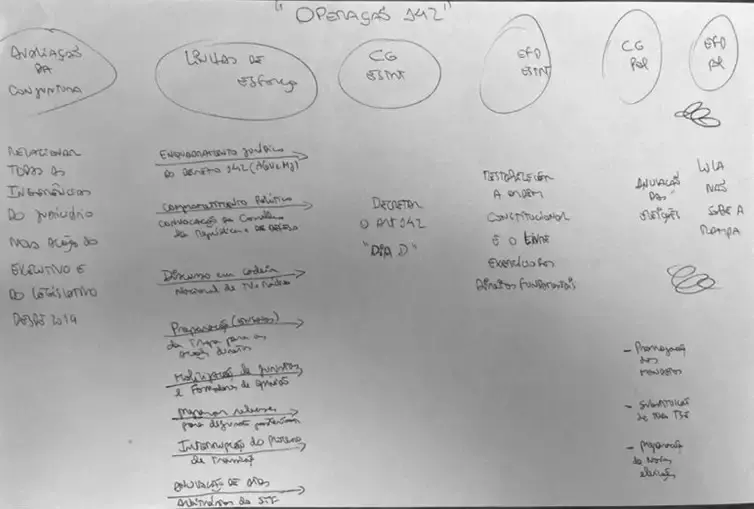 "OPERAÇÃO 142"
AVALIAÇÃO
DA
CONJUNTURA
LINHAS DE
ESFORÇO
CG
ESTRT
EFD
ESTRT
CG
POL
EFD
POL
RELACIONAR
TODAS AS
INGERÊNCIAS
DO JUDICIÁRIO
NAS AÇÃO DO
EXECUTIVO E
DO LEGISLATIVO
DESDE 2019
ENQUADRAMENTO jurídico
DO DECRETO 142 (AGU e MJ)
COMPROMETIMENTO Político
CONVOCAÇÃO do Conselho
da República e DA DEFESA
Discurso em cadeia
Nacional de TV e Rádio
Preparação
da Tropa para as
ações diretas
Mobilização de juristas
e Formadores de opinião
para
Interrupção do Processo
de Transição
ANULAÇÃO DE ATOS
Arbitrários do STF
DECRETAR
O ART 142
"DIA D"
RESTABELECER
A ORDEM
CONSTITUCIONAL
E O LIVRE
EXERCÍCIO DOS
DIREITOS FUNDAMENTAIS
ANULAÇÃO
DAS
ELEIÇÕES
- Prorrogação
dos
MANDATOS
- SUBSTITUIÇÃO
DE TODO TSE
- PREPARAÇÃO
de novas
eleições
LULA
NÃO
SOBE A
RAMPA